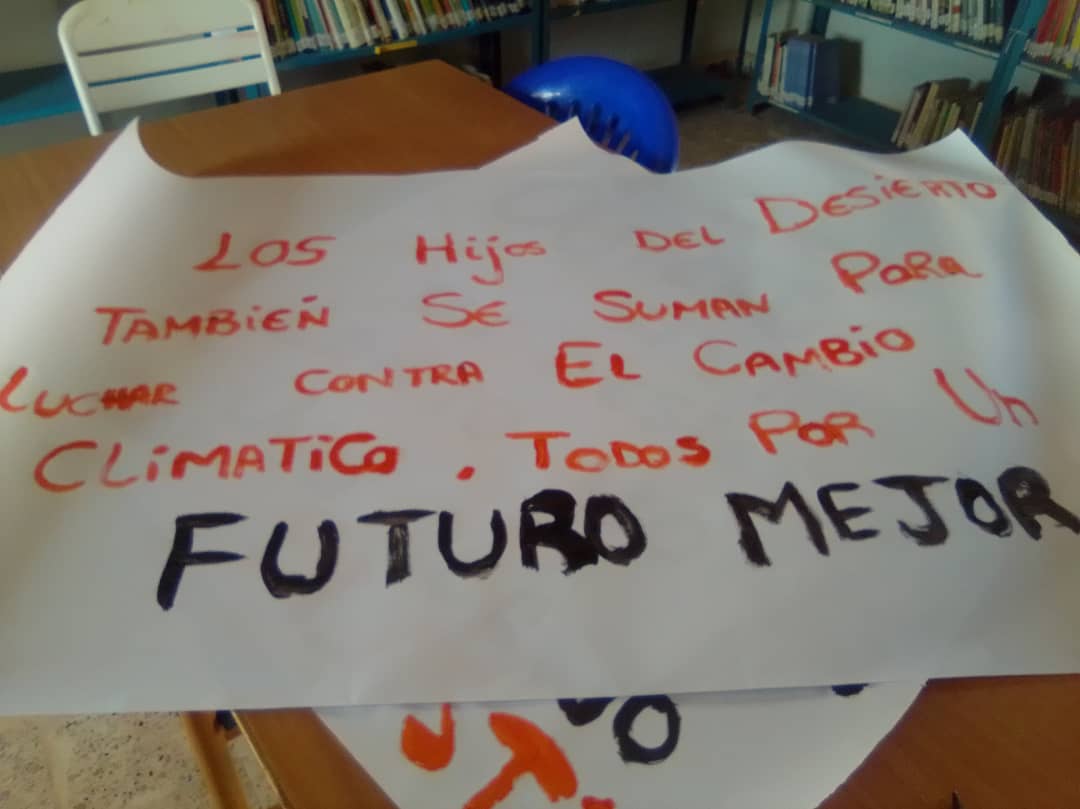 LOS Hijos DEL DESIERTO
TAMBIÉN SE SUMAN PARA
LUCHAR CONTRA EL CAMBIO
CLIMATICO. TODOS POR Un
FUTURO MEJOR